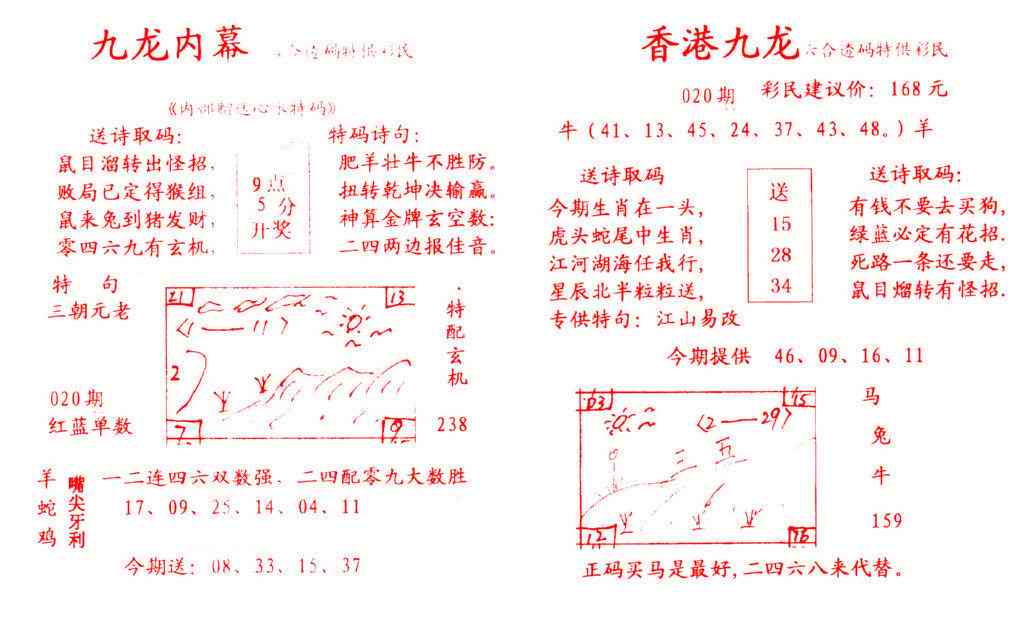 九龙内幕
合透码特供彩民
《内部赠送心水特码》
送诗取码:
鼠目溜转出怪招,
败局已定得猴组,
鼠来兔到猪发财,
零四六九有玄机,
9点
5分
开奖
特码诗句:
肥羊壮牛不胜防。
扭转乾坤决输赢。
神算金牌玄空数:
二四两边报佳音。
特 句
三朝元老
020期
红蓝单数
21
13
〈1——11〉
2
7
9
特配玄机
238
羊蛇鸡
嘴尖牙利
一二连四六双数强. 二四配零九大数胜
17、09、25、14、04、11
今期送: 08、33、15、37
香港九龙
六合透码特供彩民
020期 彩民建议价: 168元
牛(41、13、45、24、37、43、48。)羊
送诗取码
今期生肖在一头,
虎头蛇尾中生肖,
江河湖海任我行,
星辰北半粒粒送,
专供特句: 江山易改
送
15
28
34
送诗取码:
有钱不要去买狗,
绿蓝必定有花招.
死路一条还要走,
鼠目熘转有怪招.
今期提供 46、09、16、11
03
45
〈2——29〉
三五
12
16
马
兔
牛
159
正码买马是最好,二四六八来代替。